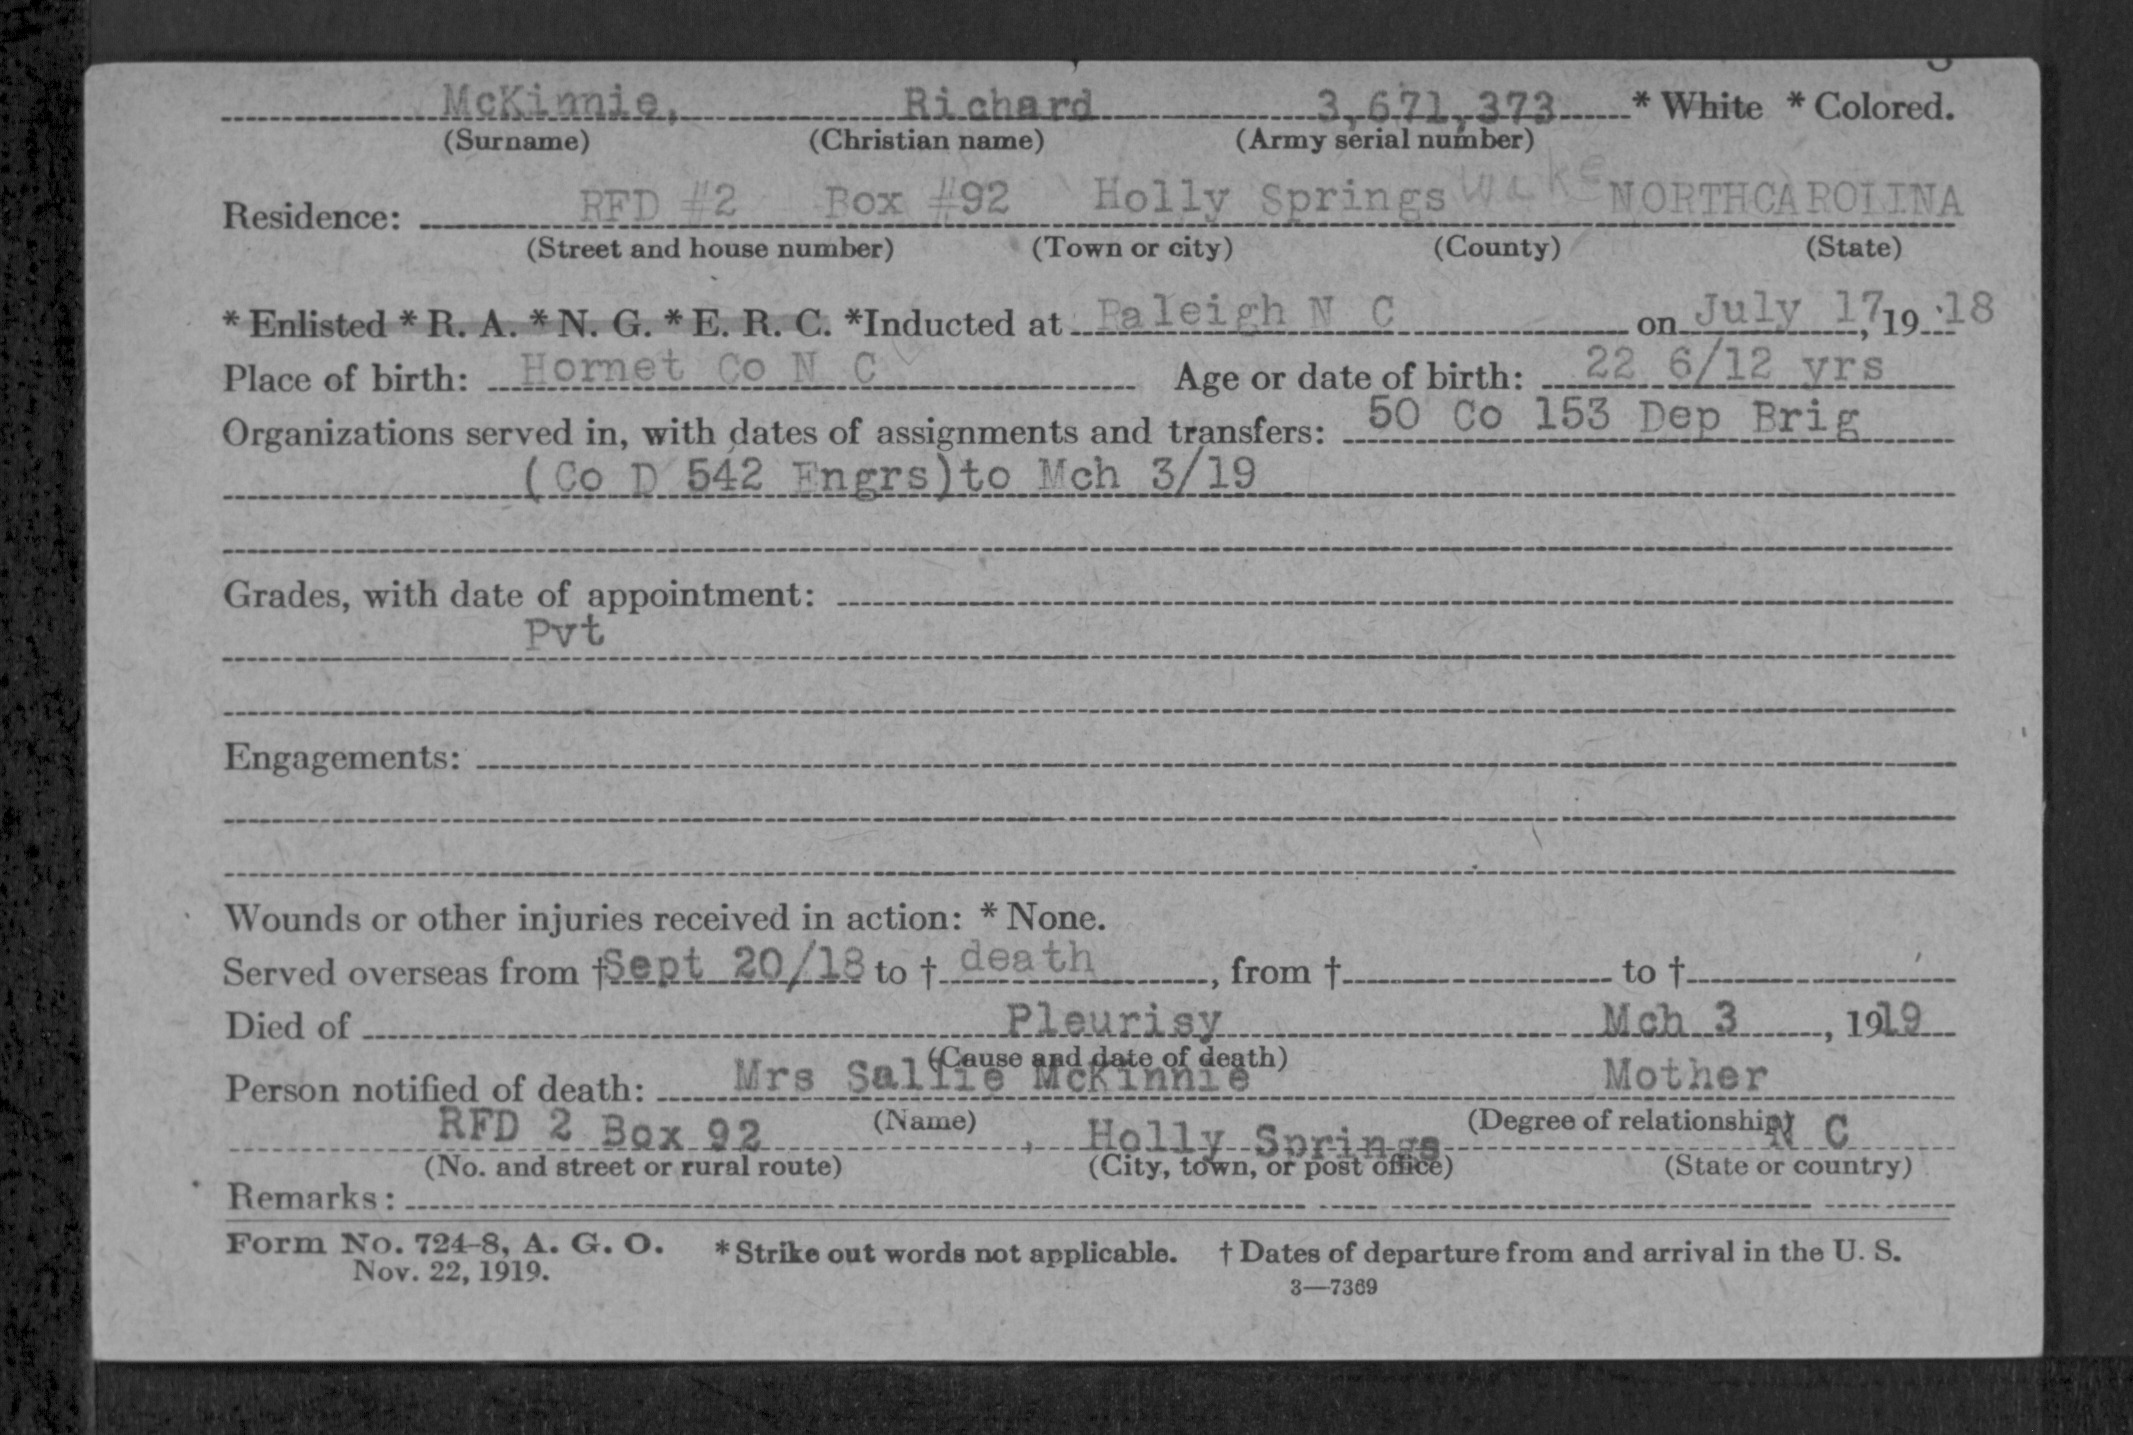 McKinnie, Richard 3,671,373 * White * Colored.
(Surname) (Christian name) (Army serial number)
Residence: RFD #2 Box #92 Holly Springs Wake NORTHCAROLINA
(Street and house number) (Town or city) (County) (State)
* Enlisted * R. A. * N. G. * E. R. C. *Inducted at Raleigh N C on July 17, 19 18
Place of birth: Hornet Co N C Age or date of birth: 22 6/12 yrs
Organizations served in, with dates of assignments and transfers: 50 Co 153 Dep Brig
(Co D 542 Engrs)to Mch 3/19
Grades, with date of appointment:
Pvt
Engagements:
Wounds or other injuries received in action: * None.
Served overseas from †Sept 20/18 to † death, from † to †
Died of Pleurisy Mch 3, 1919
(Cause and date of death)
Person notified of death: Mrs Sallie McKinnie Mother
(Name) (Degree of relationship)
RFD 2 Box 92, Holly Springs N C
(No. and street or rural route) (City, town, or post office) (State or country)
Remarks:
Form No. 724-8, A. G. O. * Strike out words not applicable. † Dates of departure from and arrival in the U. S.
Nov. 22, 1919.
3—7369